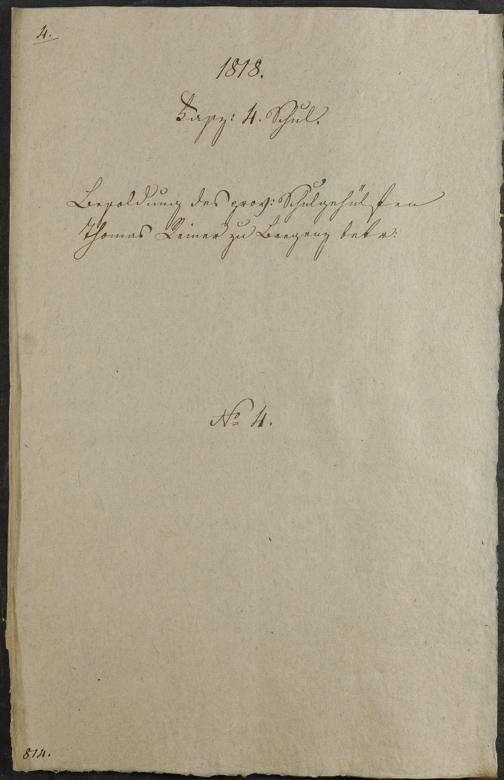 4.
1818.
4. Schul.
Besoldung des prov: Schulgehülfen
Thomas Leiner zu betr:
No 4.
814.